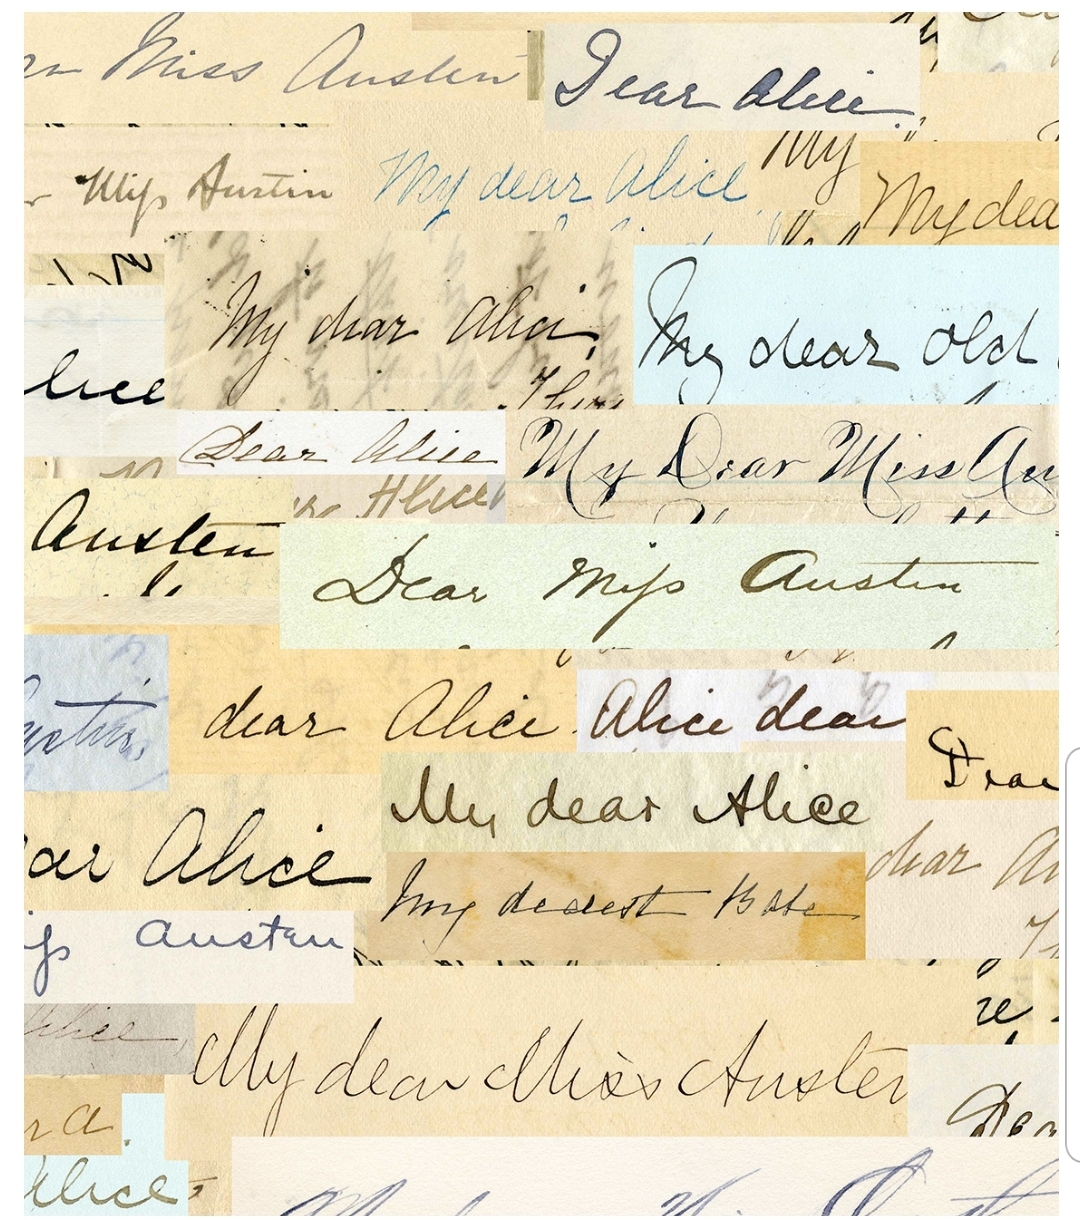 Miss Austen
Dear Alice
Miss Austin
My dear Alice
My
My dea
My dear Alice,
My dear old
lice
Dear Alice
My Dear Miss Au
Alice
Austen
Dear Miss Austen
dear Alice
Alice dear
Dear
My dear Alice
ar Alice
dear Au
My dearest
Austen
re
Alice,
My dear Miss Austen
Dea
r a.
Alice